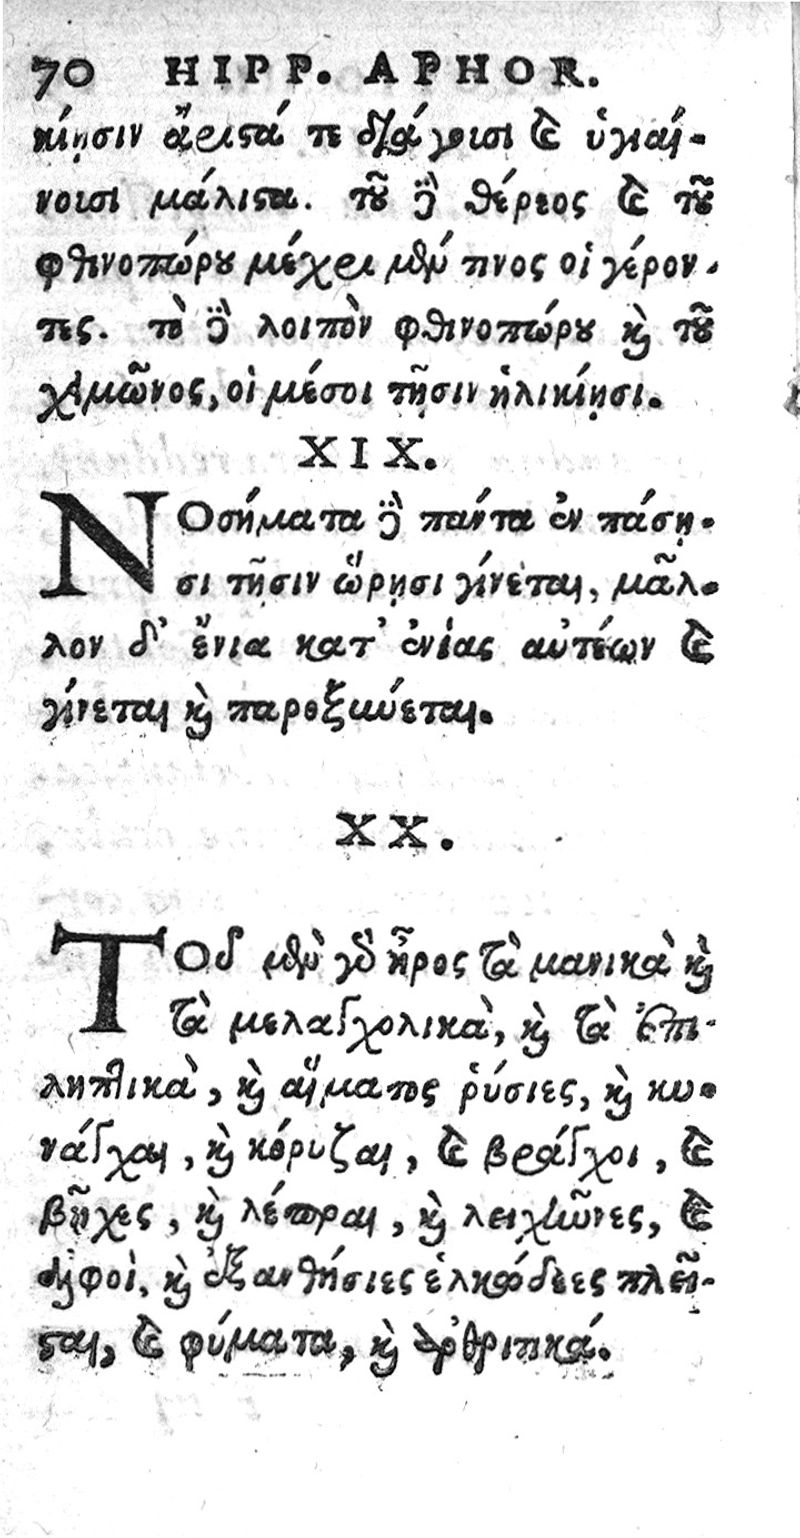 70 HIPP. APHOR.
κίησιν ἄριστά τε διάγουσι καὶ ὑγιαί-
νουσι μάλιστα. τοῦ δὲ θέρεος καὶ τοῦ
φθινοπώρου μέχρι μέν τινος οἱ γέρον-
τες. τὸ δὲ λοιπὸν φθινοπώρου καὶ τοῦ
χειμῶνος, οἱ μέσοι τῇσιν ἡλικίῃσι.
XIX.
ΝΟσήματα δὲ πάντα ἐν πάσῃ-
σι τῇσιν ὥρῃσι γίνεται, μᾶλ-
λον δ' ἔνια κατ' ἐνίας αὐτέων καὶ
γίνεται καὶ παροξύνεται.
XX.
ΤΟῦ μὲν γὰρ ἦρος τὰ μανικὰ καὶ
τὰ μελαγχολικὰ, καὶ τὰ ἐπι-
ληπτικὰ, καὶ αἵματος ῥύσιες, καὶ κυ-
νάγχαι, καὶ κόρυζαι, καὶ βράγχοι, καὶ
βῆχες, καὶ λέπραι, καὶ λειχῆνες, καὶ
ἀλφοὶ, καὶ ἐξανθήσιες ἑλκώδεες πλεῖ-
σται, καὶ φύματα, καὶ ἀρθριτικά.